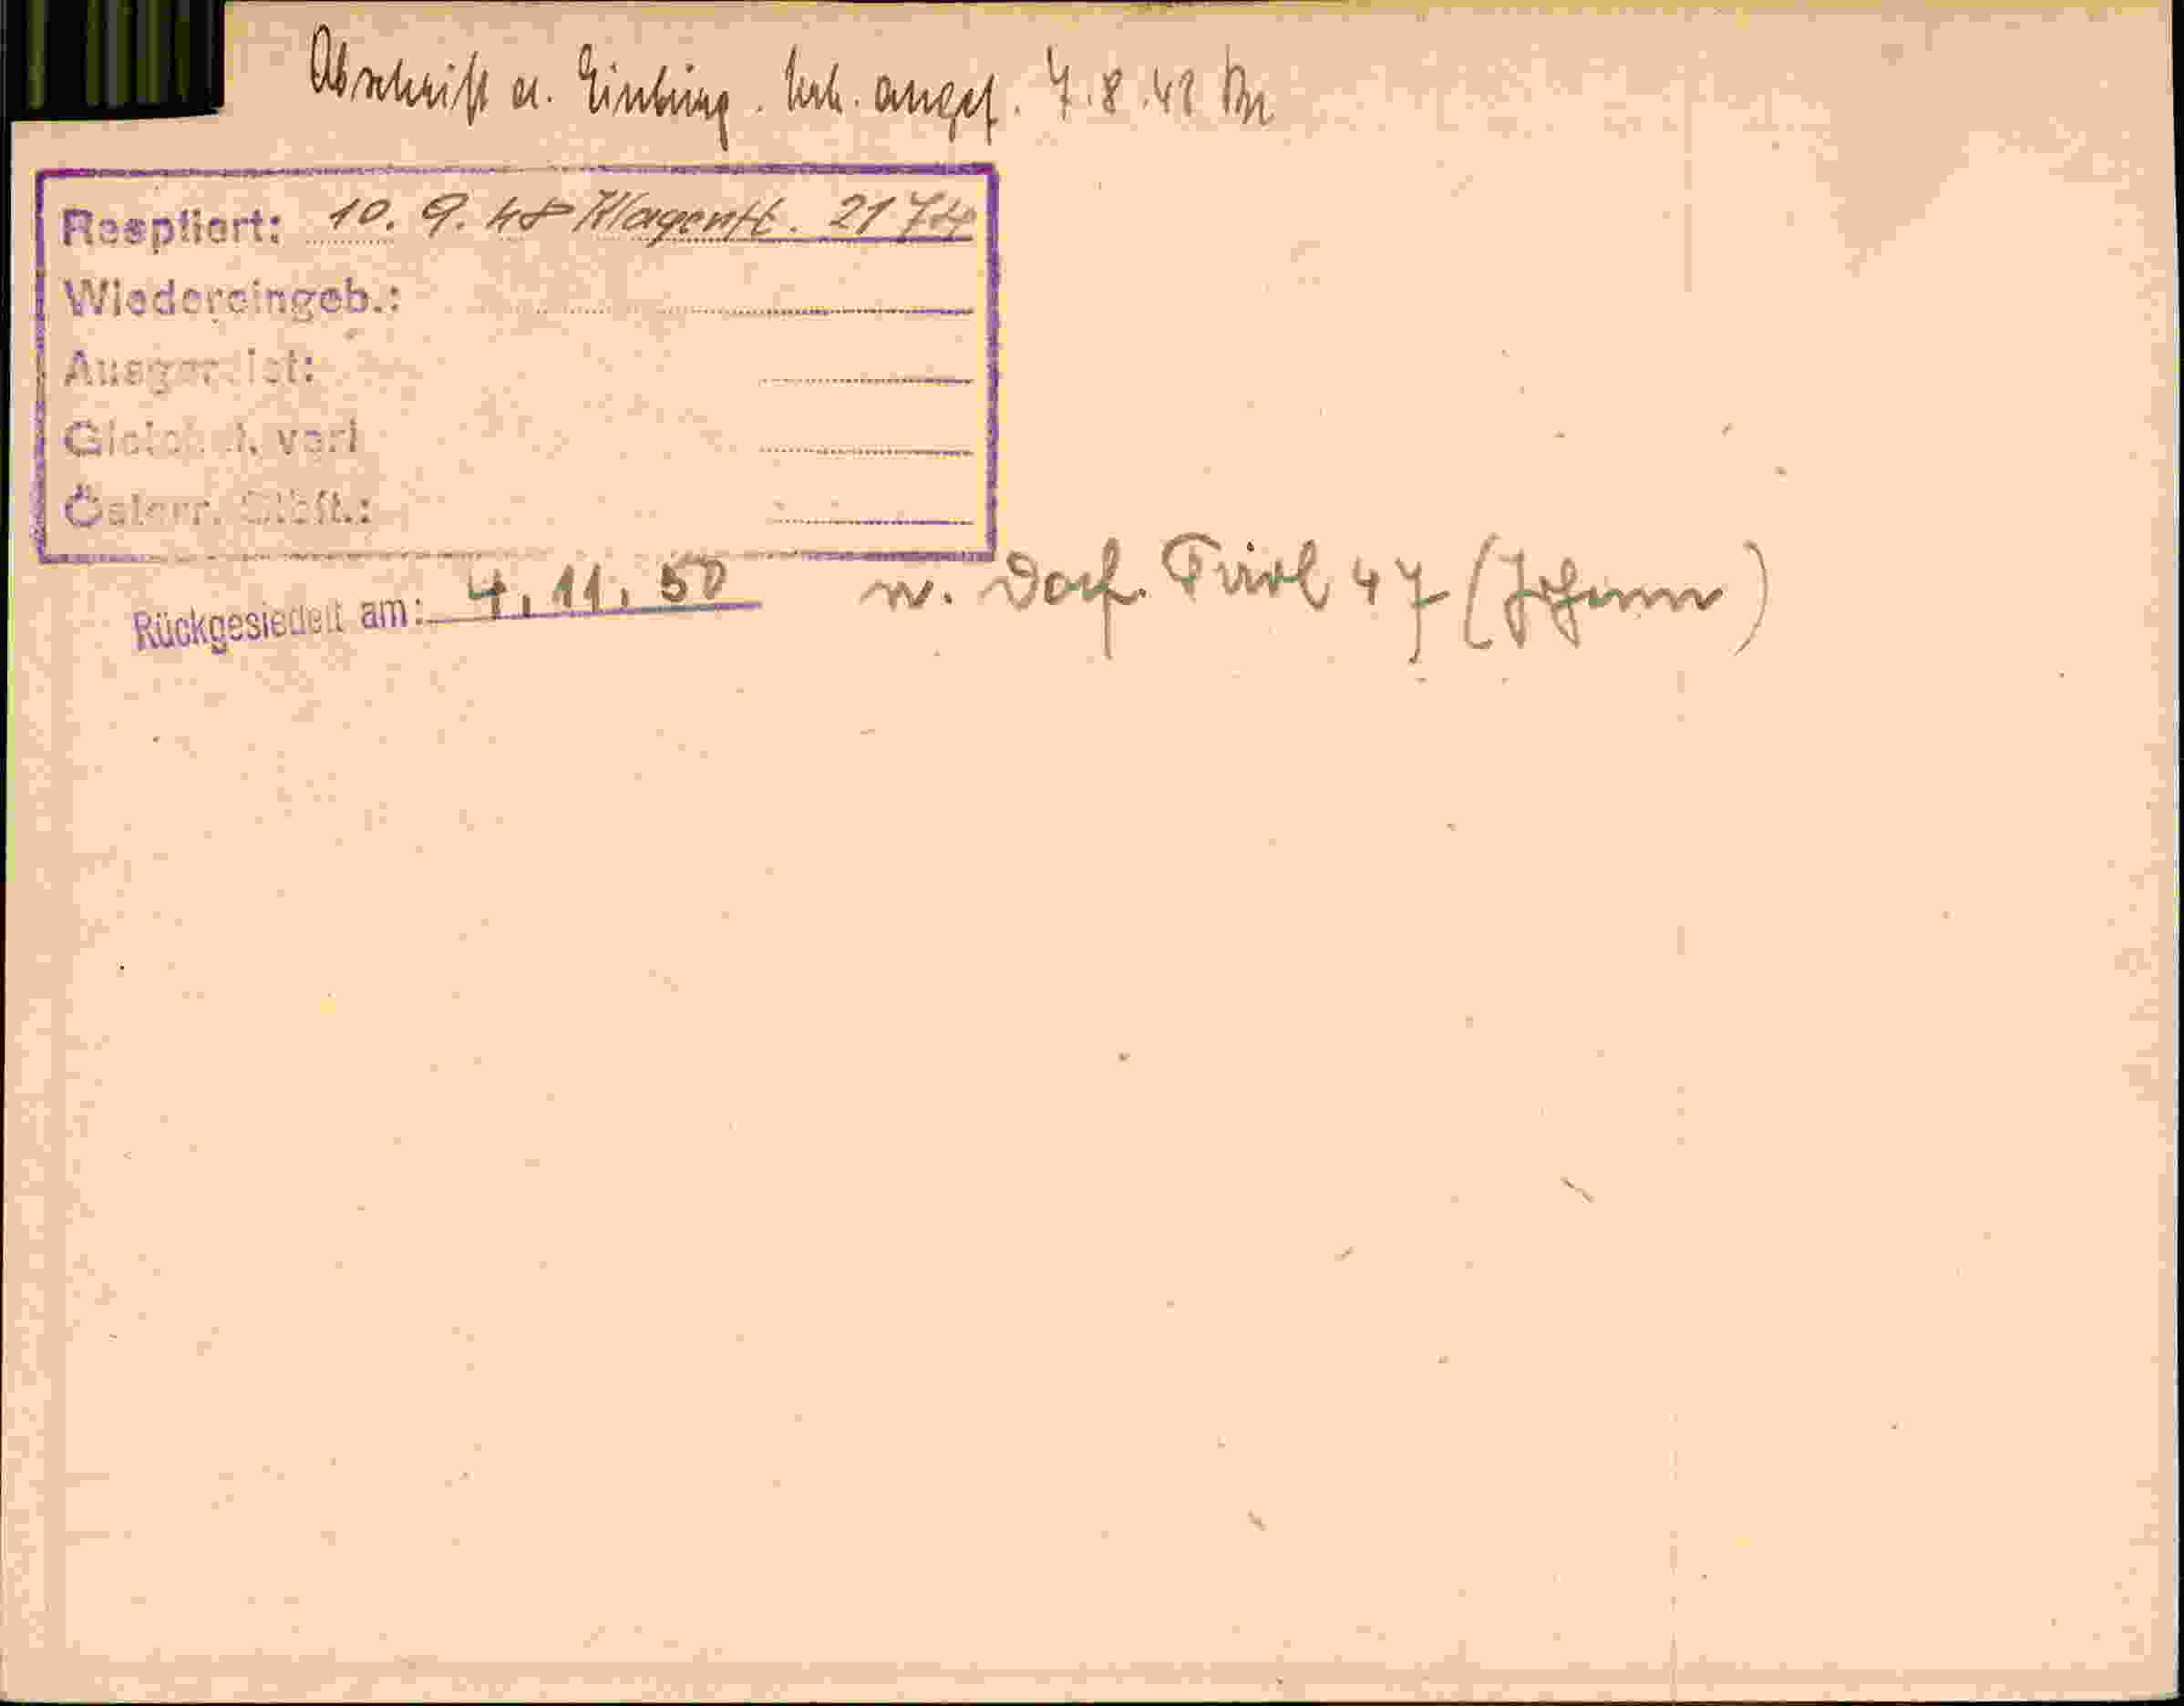 Abschrift a. Einbürg. Urk. angef. 7.8.48
Reoptiert: 10. 9. 48 Klagenft. 2174
Wiedereingeb.:
Ausgeredist:
Gleichst. verl
Österr. Stbft.:
Rückgesiedelt am: 4. 11. 50 n. Dorf. Tirol 47 (Johann)